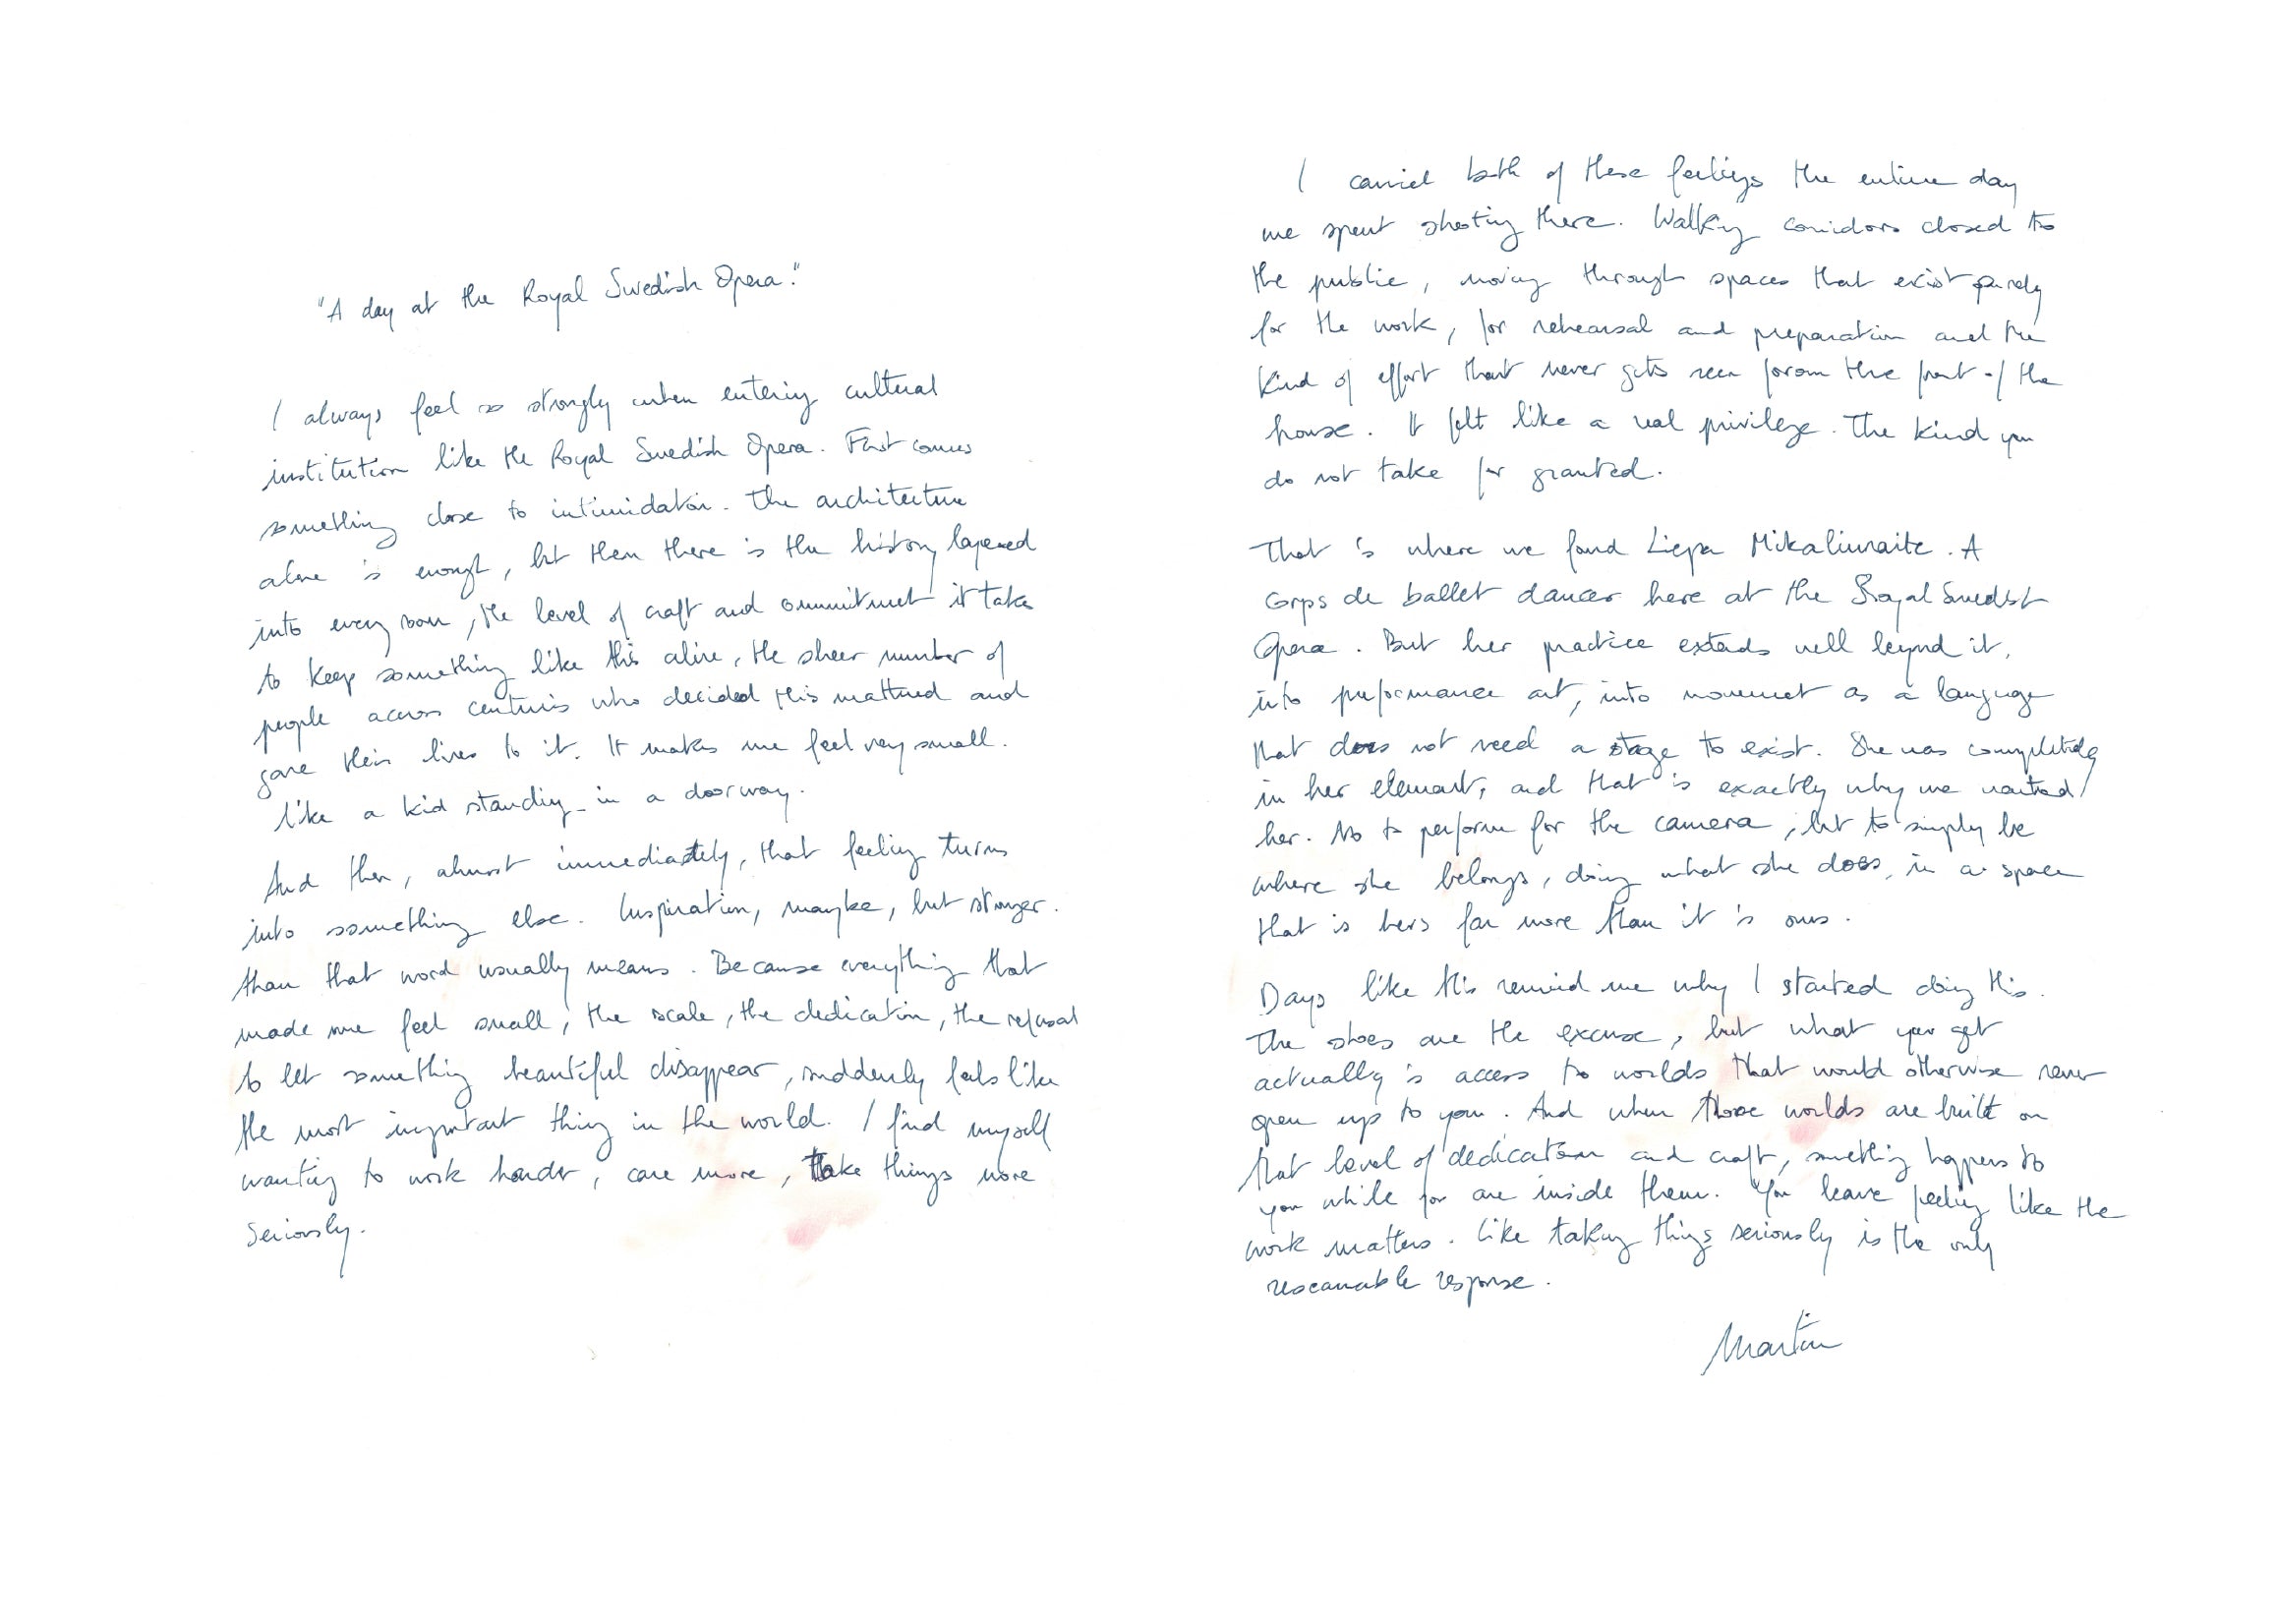 "A day at the Royal Swedish Opera."
I always feel so strongly when entering cultural
institution like the Royal Swedish Opera. First comes
something close to intimidation. The architecture
alone is enough, but then there is the history layered
into every room, the level of craft and commitment it takes
to keep something like this alive, the sheer number of
people across centuries who decided this mattered and
gave their lives to it. It makes me feel very small.
like a kid standing in a doorway.
And then, almost immediately, that feeling turns
into something else. Inspiration, maybe, but stronger.
than that word usually means. Because everything that
made me feel small, the scale, the dedication, the refusal
to let something beautiful disappear, suddenly feels like
the most important thing in the world. I find myself
wanting to work harder, care more, take things more
seriously.
I carried both of these feelings the entire day
we spent shooting there. Walking corridors closed to
the public, moving through spaces that exist purely
for the work, for rehearsal and preparation and the
kind of effort that never gets seen from the front of the
house. It felt like a real privilege. The kind you
do not take for granted.
That is where we found Liepa Mikaliunaite. A
corps de ballet dancer here at the Royal Swedish
Opera. But her practice extends well beyond it,
into performance art, into movement as a language
that does not need a stage to exist. She was completely
in her element, and that is exactly why we wanted
her. No to perform for the camera, but to simply be
where she belongs, doing what she does, in a space
that is hers far more than it is ours.
Days like this remind me why I started doing this.
The shoes are the excuse, but what you get
actually is access to worlds that would otherwise never
open up to you. And when those worlds are built on
that level of dedication and craft, something happens to
you while you are inside them. You leave feeling like the
work matters. Like taking things seriously is the only
reasonable response.
Martin